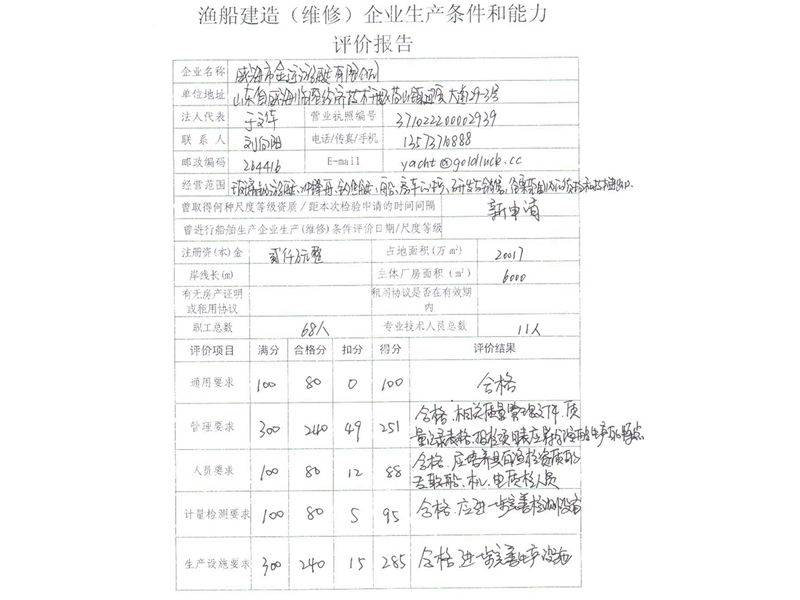 渔船建造（维修）企业生产条件和能力
评价报告
企业名称 威海市金运游艇有限公司
单位地址 山东省威海临港经济技术开发区草山镇 大南29-3号
法人代表 于文华 营业执照编号 371022200002939
联系人 刘向阳 电话/传真/手机 13573710888
邮政编码 264416 E-mail yacht@goldluck.cc
经营范围 玻璃钢游艇、冲锋舟、钓鱼艇、
曾取得何种尺度等级资质/距本次检验申请的时间间隔 新申请
曾进行船舶生产企业生产(维修)条件评价日期/尺度等级
注册资(本)金 贰仟万元整 占地面积(万m²) 20017
岸线长(m) 主体厂房面积(m²) 6000
有无房产证明或租用协议 租用协议是否在有效期内
职工总数 68人 专业技术人员总数 11人
评价项目 满分 合格分 扣分 得分 评价结果
通用要求 100 80 0 100 合格
管理要求 300 240 49 251 合格、相关质量管理文件、质
量记录表格、
人员要求 100 80 12 88 合格、应培养具有渔检资质的
船、机、电质检人员
计量检测要求 100 80 5 95 合格、应进一步完善检测设备
生产设施要求 300 240 15 285 合格 进一步完善生产设施